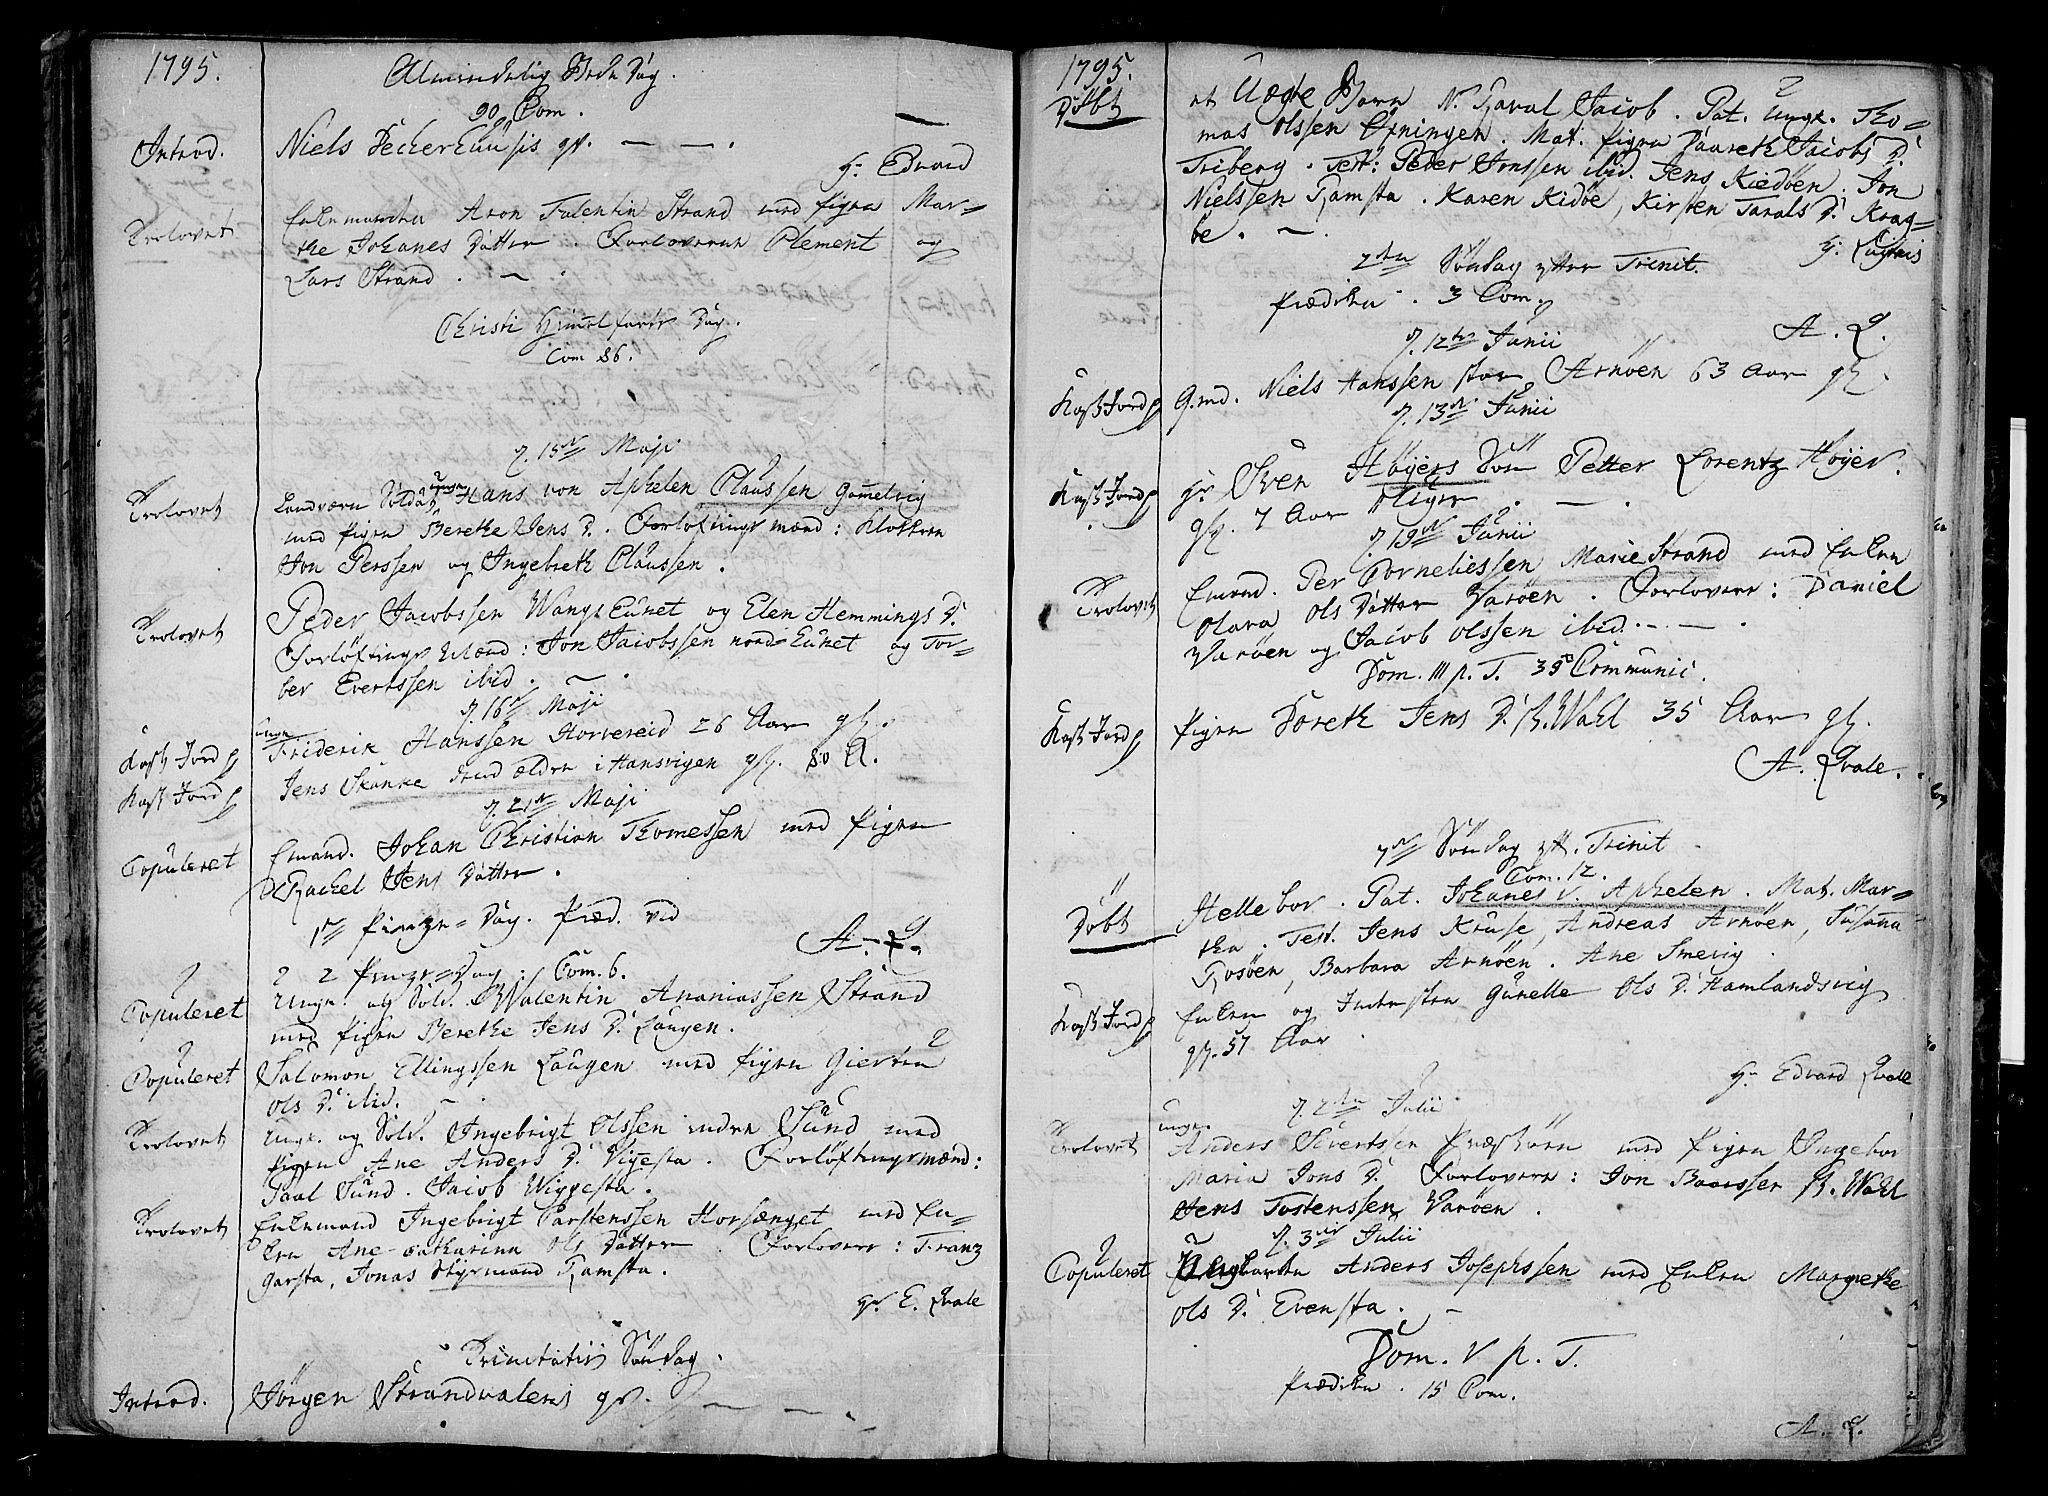 1795.
Almindelig Bede Dag.
90 Com.
Introd. Niels Deckerhuusis qv. — — .
Hr. Edvard
Trolovet Enkemanden Aron Falentin Strand med pigen Mar=
the Johanes Dotter. Forloverne Clement og
Lars Strand. — .
Christi Himelfarts Dag.
Com 86.
d. 15de Maji
Trolovet Landværn Soldat Hans von Aphelen Claussen Gamelvig
med pigen Berethe Jens D. Forløftings mænd: Klokken
Jon Perssen og Ingebreth Claussen.
Trolovet Peder Jacobssen Wangs Eunet og Elen Hemmings D.
Forløftings Mænd: Jon Jacobssen nord-Eunet og Tor=
ber Evertssen ibid. — .
d. 16de Maji
Kast Jord p ungk. Friderik Hanssen Horvereid 26 Aar gl.
Kast Jord p Jens Skanke den ældre i Hansvigen gl. 80 A.
d. 21de Maji
Copuleret Emand. Johan Christian Thomessen med Pigen
Rachel Jens Dotter.
1ste Pintze=Dag. Præd. ved
A. Q.
2 Pintze=Dag. Com. 6.
Copuleret Ungk. og Sold. Walentin Ananiassen Strand
med pigen Berethe Jens D. Laugen.
Copuleret Salomon Ellingssen Laugen med pigen Giertru
Ols D. ibid. — .
Trolovet Ungk. og Sold. Ingebrigt Olssen indre Sund med
pigen Ane Anders D. Vigesta. Forløftingsmænd:
Paul Sund. Jacob Wiggesta.
Trolovet Enkemand Ingebrigt Carstenssen Horsænget med En=
ken Ane-Catharina Ols Dotter. Forlovere: Franz
Garsta, Jonas Styrmand Ramsta.
Hr. E. Qvale
Trinitatis Søndag.
Introd. Jørgen Strandvalens qv. — — .
1795.
Døbt et Uægte Barn N. Haral Jacob. Pat. Ungk. Tho=
mas Olssen Øxningen. Mat: pigen Daareth Jacobs D.
Friberg. Test: Peder Jonssen ibid. Jens Kiedøen. Jon
Nielssen Ramsta. Karen Kidøe, Kirsten Tarals D. Krag=
øe. — .
2den Søndag efter Trinit.
Prædiken. 3 Com.
A. Q.
d. 12te Junii
Kast Jord p G.md. Niels Hanssen stor Arnøen 63 Aar gl.
d. 13de Junii
Kast Jord p Hr Sven Høyers Søn Petter Lorentz Høyer.
gl. 7 Aar . — .
d. 19de Junii
Trolovet Emand. Per Corneliessen Marie Strand med Enken
Olava Ols Dotter Varøen. Forlovere: Daniel
Varøen og Jacob Olssen ibid. — .
Dom. III p. T. 39 Communic.
Kast Jord p pigen Doreth Jens D. R.Wahl 35 Aar gl.
A. Qvale.
Søndag eft. Trinit
Com. 12.
Døbt Hellebor. Pat. Johanes v. Aphelen. Mat. Mar=
tha. Test. Jens Kruse, Andreas Arnøen, Susanna
Rosøen, Barbara Arnøen. Ane Smevig.
Kast Jord p Enken og Inderste Gunelle Ols D. Hamlandsvig
gl. 57 Aar.
Hr Edvard Qvale
d. 2den Julii
Trolovet ungk. Anders Sivertssen Præstøen med pigen Ingebor
Maria Jons D. Forlovere: Jon Baarssen R. Wahl
Jens Tostenssen Varøen.
d. 3die Julii
Copuleret Ungkarlen Anders Josephssen med Enken Margrethe
Ols D. Evensta. —
Dom. V p. T.
Prædiken. 15 Com.
A. Q.